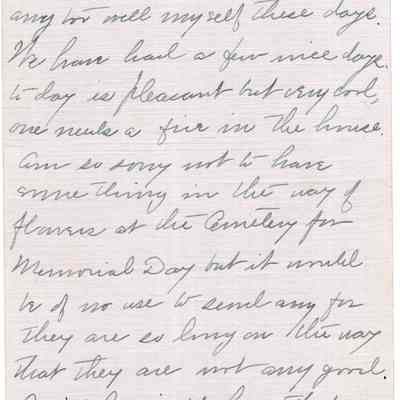 any too well myself these days.
We have had a few nice days.
to day is pleasant but very cool,
one needs a fire in the house.
Am so sorry not to have
some thing in the way of
flowers at the Cemetery for
Memorial Day but it would
be of no use to send any for
they are so long on the way
that they are not any good.